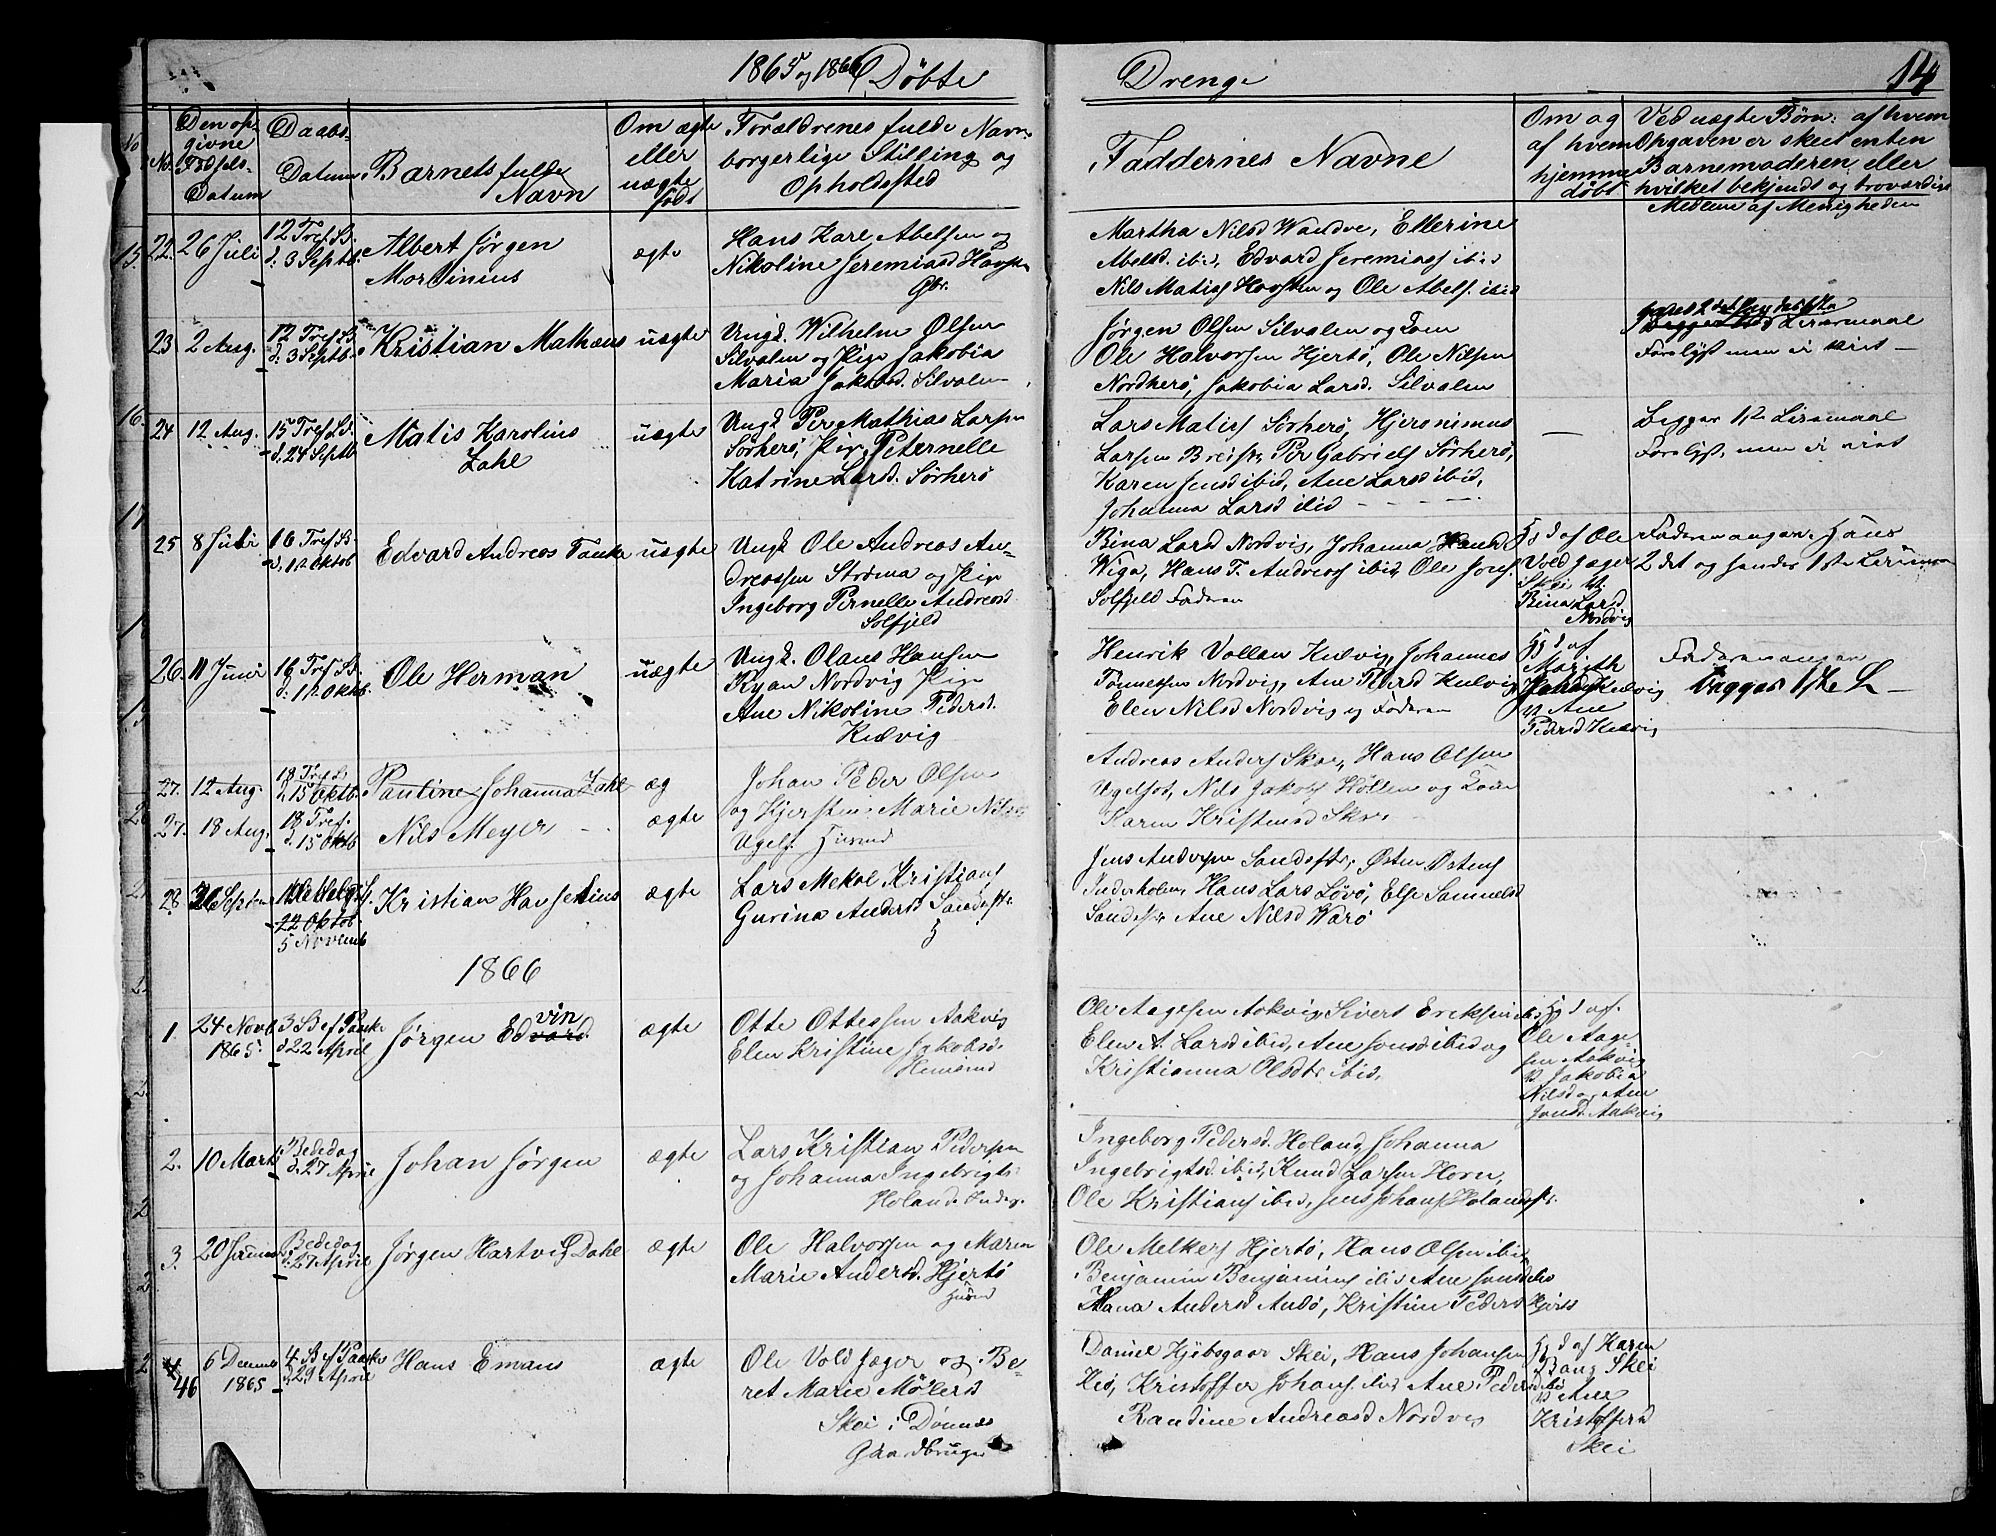 1865 og 1866 Döbte
Drenge
14
No.
Den op-
givne
Födsels-
Datum
Daabs-
Datum
Barnets fulde
Navn
Om ægte
eller
uægte
födt
Forældrenes fulde Navn
borgerlige Stilling og
Opholdssted
Faddernes Navne
Om og
af hvem
hjemme
döbt
Ved uægte Börn: af hvem
Opgaven er skeet enten
Barnemoderen eller
hvilket bekjendt og troværdigt
Medlem af Menigheden
22. 26 Juli
12 Tref. S.
d. 3 Septb.
Albert Jörgen
Mortinius
ægte
Hans Karl Abelsen og
Nikoline Jeremiasd Havsten
Gbr.
Martha Nilsd Wandve, Ellerine
Abelsd. ibid, Edvard Jeremiass ibid
Nils Matiss Havsten og Ole Abels. ibid
23 2 Aug.
12 Tref. S.
d. 3 Septb.
Kristian Matheus
uægte
Ungk. Wilhelm Olsen
Silvalen og Pige Jakobia
Maria Jakobsd. Silvalen
Jörgen Olsen Silvalen og Kone
Ole Halvorsen Hjertö, Ole Nilsen
Nordherö, Jakobia Larsd. Silvalen
Leiermaal
24 12 Aug.
15 Tref. S.
d. 24 Septb
Matis Karolius
Zahl
uægte
Ungk Per Mathias Larsen
Sörherö, Pige Peternelle
Katrine Larsd. Sörherö
Lars Matiss Sörherö, Hjeronimus
Larsen Breistr. Per Gabriels Sörherö,
Karen Jensd ibid, Ane Larsd ibid,
Johanna Larsd ibid
Begges 1ste Leiermaal
25 8 Juli
16 Tref. S.
Edvard Andreas Fanke
uægte
Ungk Ole Andreas An-
dreassen Ströma og Pige
Ingeborg Pernelle Andreasd
Solfjeld
Bina Larsd Nordvig, Johanna Hansd
Wiga, Hans T. Andreass ibid, Ole Jons.
Solfjeld Faderen
Hjd af Ole
Vold Jæger
Skei
Bina Larsd
Nordvig
Faderen angav. Hans
2det og hendes 1ste Leiermaal
26. 11 Juni
16 Tref. S.
Ole Herman
uægte
Ungk. Olaus Hansen
Ryan Nordvig Pige
Ane Nikoline Pedersd.
Kulvig
Henrik Vollan Kulvig, Johannes
Tönnessen Nordvig, Ane Pedersd Kulvig
Elen Nilsd Nordvig og Faderen
Hjd af
Marith
Kulvig
v Ane
Pedersd Kulvig
Faderen angav
Begges 1ste L
27. 12 Aug.
18 Tref. S
d. 15 Oktb.
Pauline Johanna Zahl
æg
27. 18 Aug.
18 Tref.
d. 15 Oktb
Nils Meyer
ægte
Johan Peder Olsen
og Kjersten Marie Nilsd
Ugels. Husmd
Andreas Anders Skei, Hans Olsen
Ugelsöt, Nils Jakobs Höllen og Kone
Karen Kristensd Skei
28 Septem
22 Oktob.
5 Novemb
Kristian Havsenius
ægte
Lars Mekal Kristians
Gurina Andersd Sandstr.
Jens Andersen Sandstr., Östen Östens
Inderholmen, Hans Lars Lövö, Else Samuelsd
Sandstr Ane Nilsd Warö
1866
1 24 Novb
1865.
3 S ef Paaske
d 22 April
Jörgen Edvard
vin
ægte
Otte Ottessen Aakvig
Elen Kristine Jakobsd.
Husmd
Ole Aagesen Aakvig, Sivert Eriksen ibid
Elen A. Larsd ibid, Ane Jonsd ibid og
Kristianna Olsdtr ibid.
Hjd af.
Ole Aage-
sen Aakvig
v Jakobia
Nilsd og Ane
Jonsd. Aakvig
2. 10 Marts
Bededag
d. 27 April
Johan Jörgen
ægte
Lars Kristian Pedersen
og Johanna Ingebrigts
Holand. Inder.
Ingeborg Pedersd. Holand, Johanna
Ingebrigtsd. ibid, Knud Larsen Horn,
Ole Kristians ibid, Jens Johans Holandstr.
3. 20 Januar
Bededag
d. 27 April
Jörgen Hartvig Dahl
ægte
Ole Halvorsen og Maren
Marie Andersd. Hjertö
Husmd
Ole Melkers Hjertö, Hans Olsen ibid,
Benjamin Benjamins ibid Ane Jonsd ibid
Hana Andersd Andö, Kristine Pedersd Hjertö
4
46
6 Decemb
1865
4 S ef Paaske
d 29 April
Hans Emans
ægte
Ole Vold Jæger og Be-
ret Marie Mölersd
Skei i Dönnes
Gaardbruger
Daniel Hjebsgaar Skei, Hans Johansen
Hei, Kristoffer Johans. ibid Ane Pedersd ibid
Randine Andreasd Nordvig
Hjd af Karen
Bang Skei
v Ane
Kristoffersd
Skei